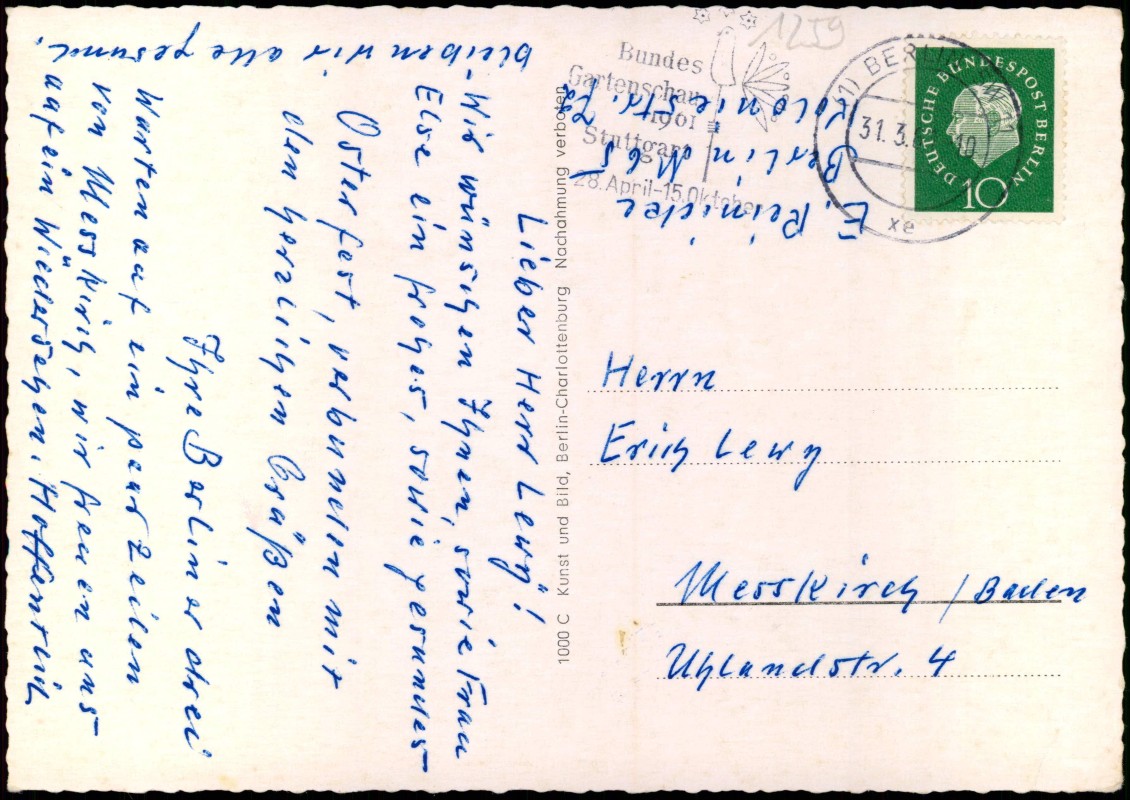 Lieber Herr Lewy!
- Wir wünschen Ihnen, sowie Frau
Else ein frohes, sowie gesundes
Osterfest, verbunden mit
den herzlichen Grüßen
Ihre Berliner drei
Warten auf ein paar Zeilen
von Messkirch, wir freuen uns
auf ein Wiedersehen. Hoffentlich
bleiben wir alle gesund.
1000 C Kunst und Bild, Berlin-Charlottenburg Nachahmung verboten
E. Reinicke
Berlin N 65
Koloniestr.
1259
Bundes
Gartenschau
1961
Stuttgart
28. April-15. Oktober
(1) BERLIN
31.3.
xe
DEUTSCHE BUNDESPOST BERLIN
10
Herrn
Erich Lewy
Messkirch / Baden
Uhlandstr. 4